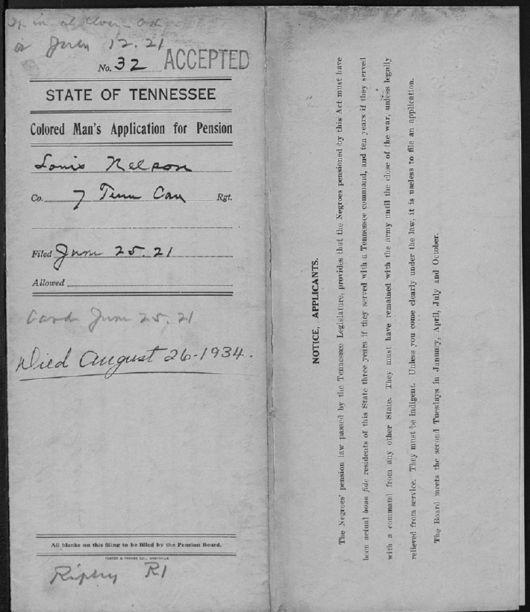 June 12. 21
No. 32 ACCEPTED
STATE OF TENNESSEE
Colored Man's Application for Pension
Louis Nelson
Co. 7 Tenn Cav Rgt.
Filed June 25. 21
Allowed
Card June 25, 21
Died August 26-1934.
All blanks on this filing to be filled by the Pension Board.
Ripley R1
NOTICE, APPLICANTS.
The Negroes' pension law passed by the Tennessee Legislature, provides that the Negroes pensioned by this Act must have
been actual bona fide residents of this State three years if they served with a Tennessee command, and ten years if they served
with a command from any other State. They must have remained with the army until the close of the war, unless legally
relieved from service. They must be indigent. Unless you come clearly under the law, it is useless to file an application.
The Board meets the second Tuesdays in January, April, July and October.